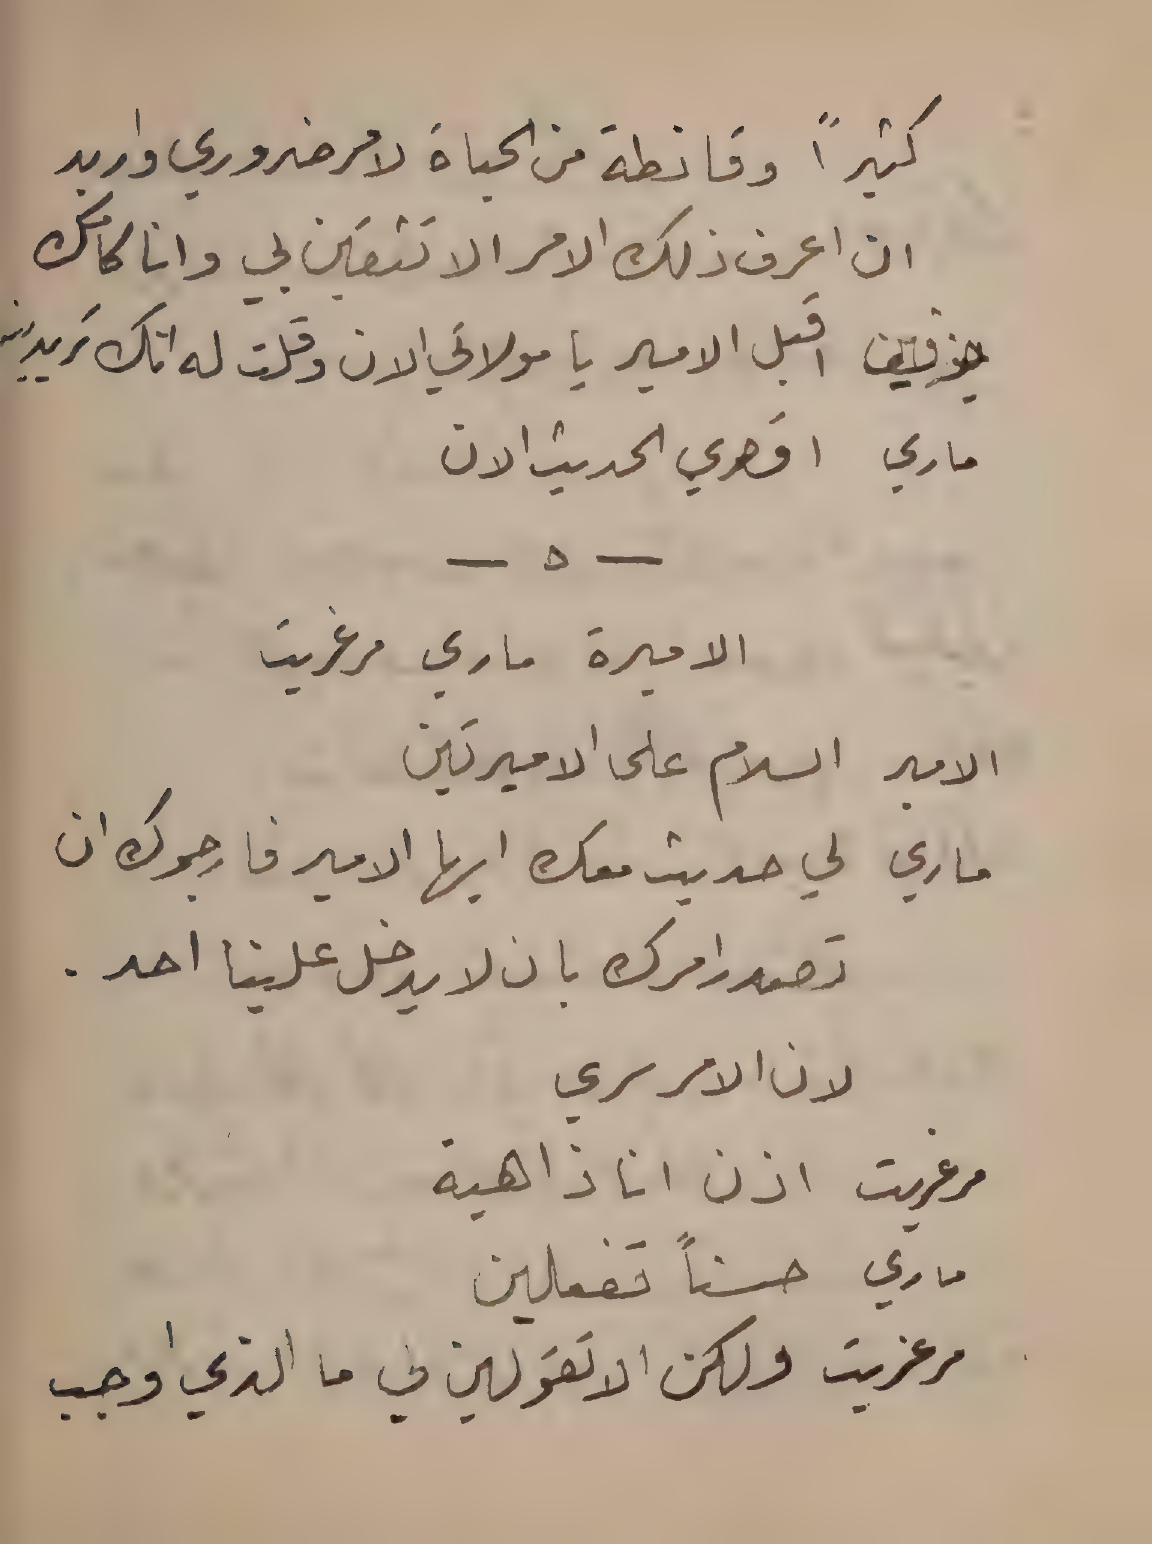 كثيراً وقانطة من الحياة لامر ضروري واريد
ان اعرف ذلك الامر الا تثقين بي وانا كامك
جوزفين اقبل الامير يا مولاتي الان وقلت له انك تريدينه
ماري اقصري الحديث الان
— ٥ —
الاميرة ماري مرغريت
الامير السلام على الاميرتين
ماري لي حديث معك ايها الامير فارجوك ان
تصدر امرك بان لا يدخل علينا احد .
لان الامر سري
مرغريت اذن انا ذاهبة
ماري حسناً تفعلين
مرغريت ولكن الا تقولين لي ما الذي اوجب